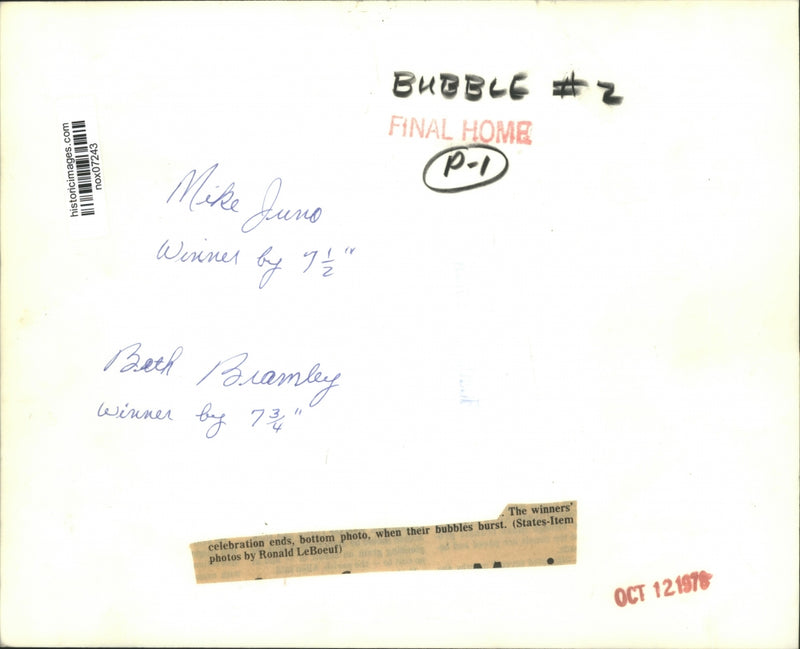 BUBBLE # 2
FINAL HOME
P-1
historicimages.com
nox07243
Mike Juno
Winner by 7 1/2"
Beth Bramley
Winner by 7 3/4"
. The winners'
celebration ends, bottom photo, when their bubbles burst. (States-Item
photos by Ronald LeBoeuf)
OCT 12 1978